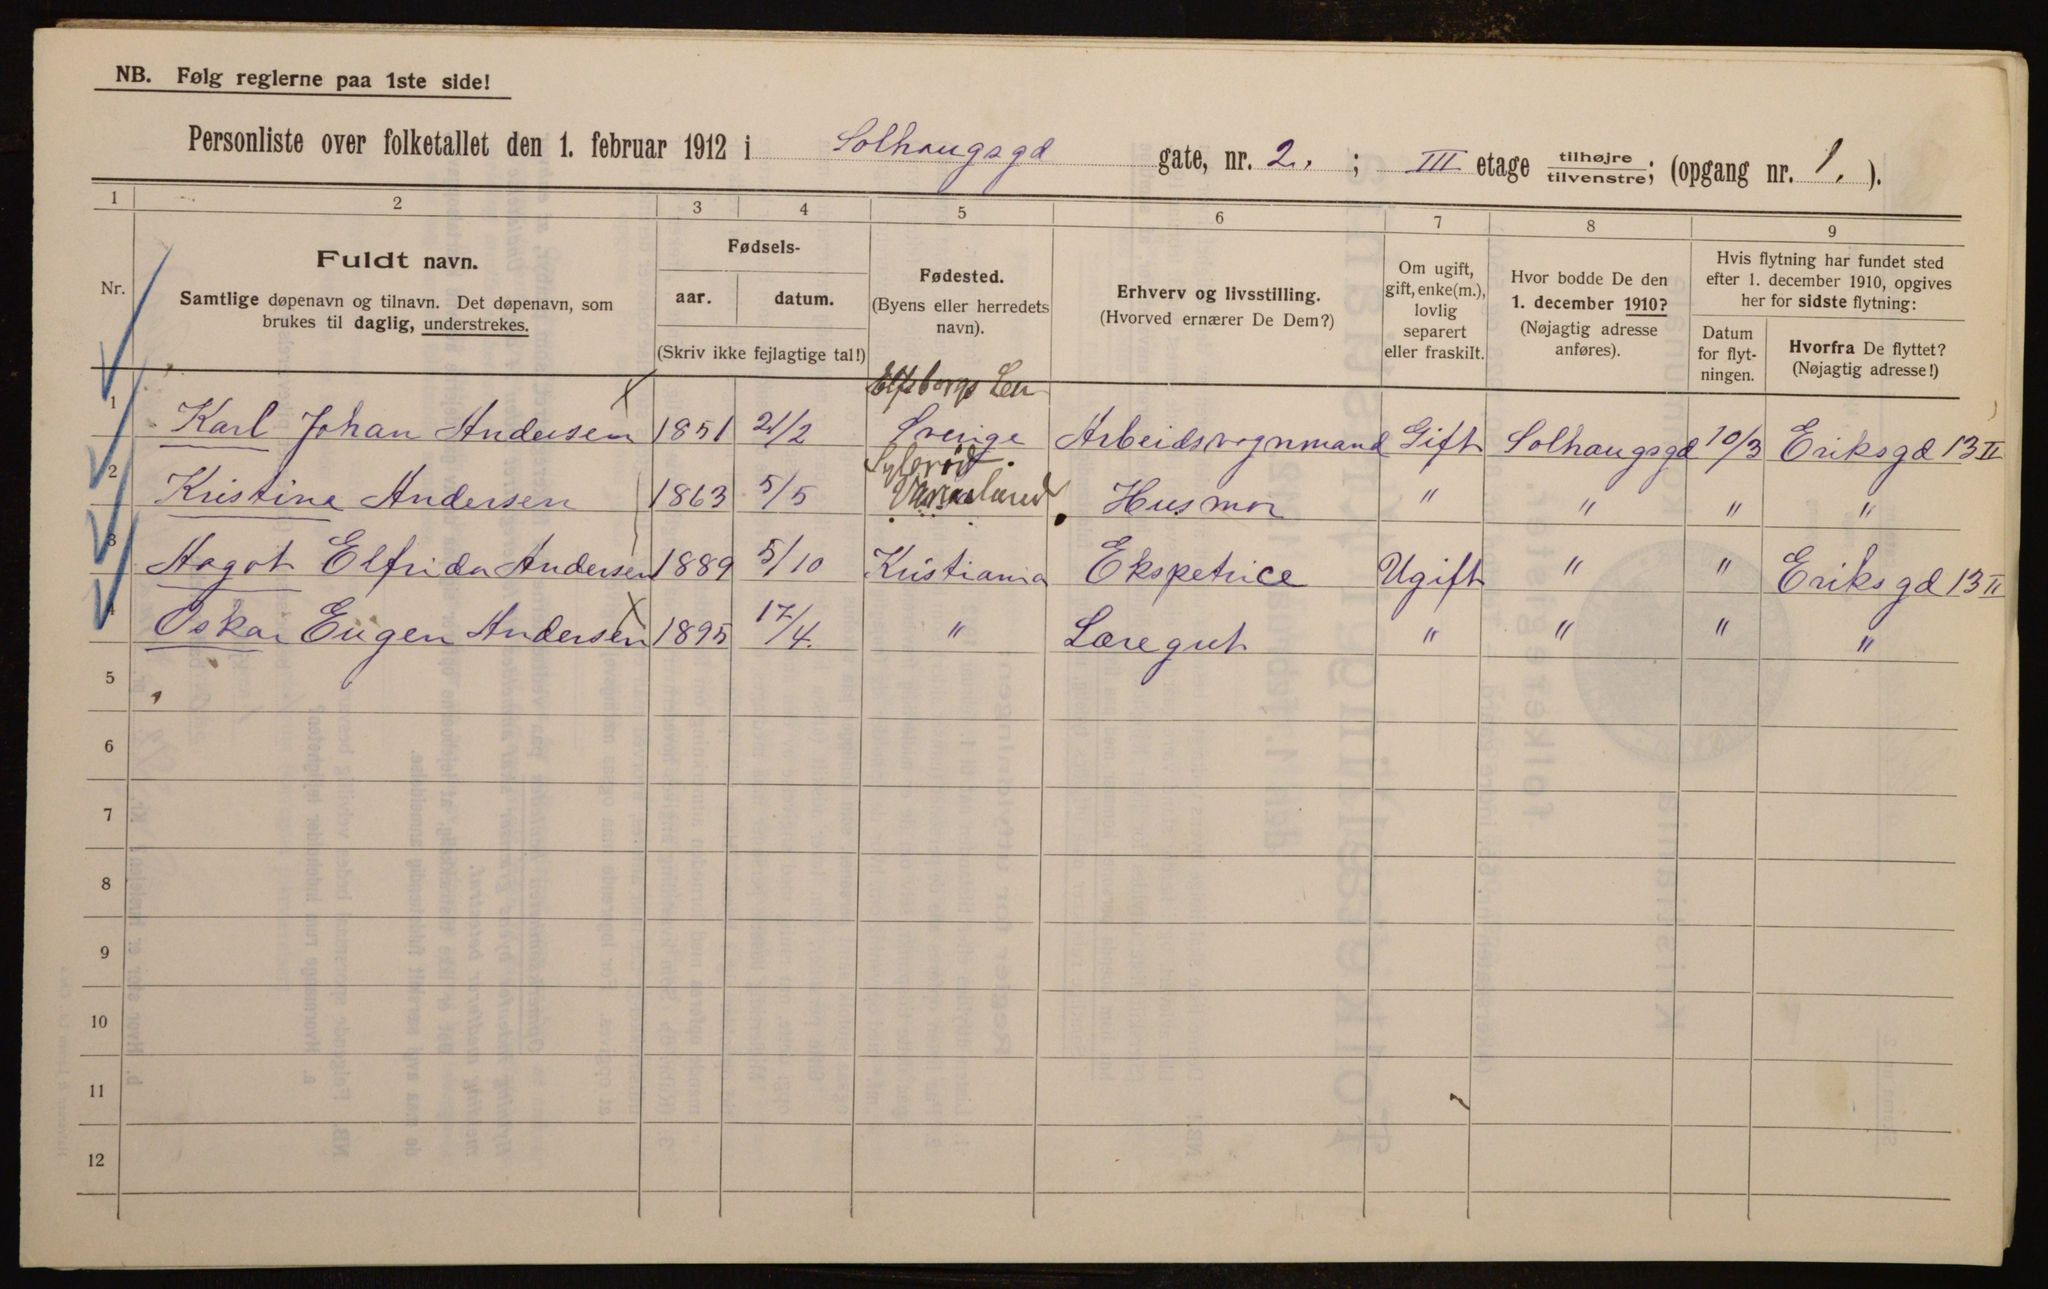 NB. Følg reglerne paa 1ste side!
Personliste over folketallet den 1. februar 1912 i Solhaugsgd gate, nr. 2. ; III etage tilhøjre tilvenstre; (opgang nr. 1. ).
1 2 3 4 5 6 7 8 9
Nr.
Fuldt navn.
Samtlige døpenavn og tilnavn. Det døpenavn, som
brukes til daglig, understrekes.
Fødsels-
aar. datum.
(Skriv ikke fejlagtige tal!)
Fødested.
(Byens eller herredets
navn).
Erhverv og livsstilling.
(Hvorved ernærer De Dem?)
Om ugift,
gift, enke(m.),
lovlig
separert
eller fraskilt.
Hvor bodde De den
1. december 1910?
(Nøjagtig adresse
anføres).
Hvis flytning har fundet sted
efter 1. december 1910, opgives
her for sidste flytning:
Datum
for flyt-
ningen.
Hvorfra De flyttet?
(Nøjagtig adresse!)
Elfsborgs Len
1 Karl Johan Andersen 1851 21/2 Sverige Arbeidsvognmand Gift Solhaugsgd 10/3 Eriksgd 13 II
2 Kristine Andersen 1863 5/5 Husmor " " " "
3 Aagot Elfrida Andersen 1889 5/10 Kristiania Ekspetrice Ugift " " Eriksgd 13 II
4 Oskar Eugen Andersen 1895 17/4. " Læregut " " " "
5
6
7
8
9
10
11
12